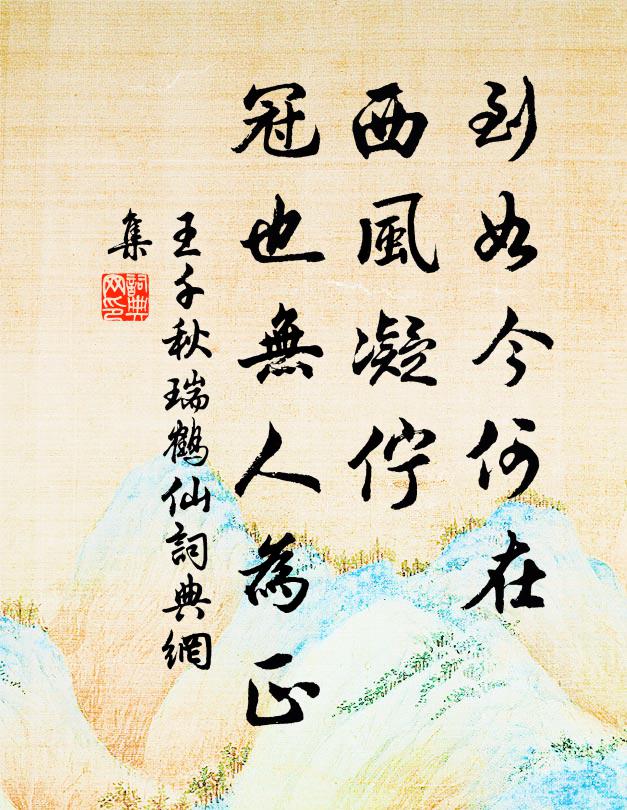 到如今何在
西風凝佇
冠也無人為正
王千秋瑞鶴仙詞典網
集
詞典網印